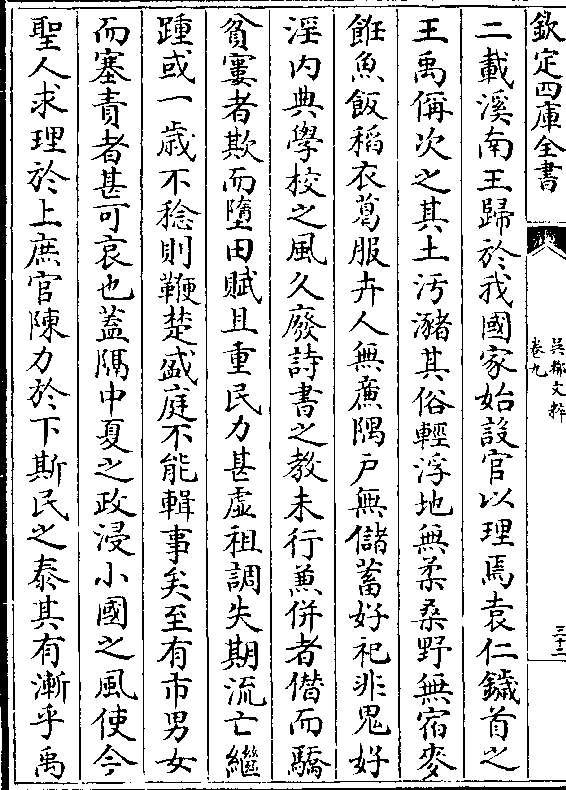 欽定四庫全書
吳都文粹
卷九
三十二
二載溪南王歸於我國家始設官以理焉袁仁鐬首之
王禹偁次之其土汚瀦其俗輕浮地無柔桑野無宿麥
飪魚飯稻衣葛服卉人無廉隅戶無儲蓄好祀非鬼好
淫内典學校之風久廢詩書之教未行兼併者僭而驕
貧窶者欺而墮田賦且重民力甚虛租調失期流亡繼
踵或一歲不稔則鞭楚盛庭不能輯事矣至有市男女
而塞責者甚可哀也蓋隔中夏之政浸小國之風使今
聖人求理於上庶官陳力於下斯民之泰其有漸乎禹